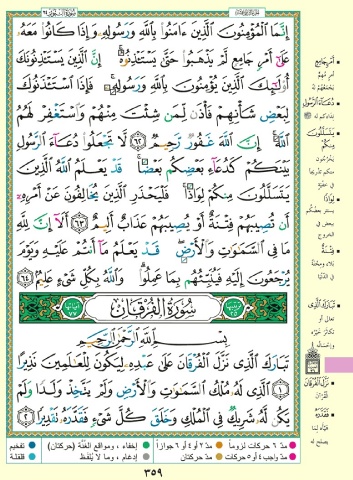 سُورَةُ النُّورِ
إِنَّمَا ٱلْمُؤْمِنُونَ ٱلَّذِينَ ءَامَنُوا۟ بِٱللَّهِ وَرَسُولِهِۦ وَإِذَا كَانُوا۟ مَعَهُۥ
عَلَىٰٓ أَمْرٍ جَامِعٍ لَّمْ يَذْهَبُوا۟ حَتَّىٰ يَسْتَـْٔذِنُوهُ ۚ إِنَّ ٱلَّذِينَ يَسْتَـْٔذِنُونَكَ
أُو۟لَـٰٓئِكَ ٱلَّذِينَ يُؤْمِنُونَ بِٱللَّهِ وَرَسُولِهِۦ ۚ فَإِذَا ٱسْتَـْٔذَنُوكَ
لِبَعْضِ شَأْنِهِمْ فَأْذَن لِّمَن شِئْتَ مِنْهُمْ وَٱسْتَغْفِرْ لَهُمُ
ٱللَّهَ ۚ إِنَّ ٱللَّهَ غَفُورٌ رَّحِيمٌ ٦٢ لَّا تَجْعَلُوا۟ دُعَآءَ ٱلرَّسُولِ
بَيْنَكُمْ كَدُعَآءِ بَعْضِكُم بَعْضًا ۚ قَدْ يَعْلَمُ ٱللَّهُ ٱلَّذِينَ
يَتَسَلَّلُونَ مِنكُمْ لِوَاذًا ۚ فَلْيَحْذَرِ ٱلَّذِينَ يُخَالِفُونَ عَنْ أَمْرِهِۦٓ
أَن تُصِيبَهُمْ فِتْنَةٌ أَوْ يُصِيبَهُمْ عَذَابٌ أَلِيمٌ ٦٣ أَلَآ إِنَّ لِلَّهِ
مَا فِى ٱلسَّمَـٰوَٰتِ وَٱلْأَرْضِ ۖ قَدْ يَعْلَمُ مَآ أَنتُمْ عَلَيْهِ وَيَوْمَ
يُرْجَعُونَ إِلَيْهِ فَيُنَبِّئُهُم بِمَا عَمِلُوا۟ ۗ وَٱللَّهُ بِكُلِّ شَىْءٍ عَلِيمٌ ٦٤
سُورَةُ الْفُرْقَانِ
بِسْمِ ٱللَّهِ ٱلرَّحْمَـٰنِ ٱلرَّحِيمِ
تَبَارَكَ ٱلَّذِى نَزَّلَ ٱلْفُرْقَانَ عَلَىٰ عَبْدِهِۦ لِيَكُونَ لِلْعَـٰلَمِينَ نَذِيرًا
١ ٱلَّذِى لَهُۥ مُلْكُ ٱلسَّمَـٰوَٰتِ وَٱلْأَرْضِ وَلَمْ يَتَّخِذْ وَلَدًا وَلَمْ
يَكُن لَّهُۥ شَرِيكٌ فِى ٱلْمُلْكِ وَخَلَقَ كُلَّ شَىْءٍ فَقَدَّرَهُۥ تَقْدِيرًا ٢
أَمْرٍ جَامِعٍ
دُعَاءَ الرَّسُولِ
يَتَسَلَّلُونَ
مِنكُمْ
لِوَاذًا
فِتْنَةٌ
تَبَارَكَ الَّذِى
نَزَّلَ الْفُرْقَانَ
فَقَدَّرَهُ
مدّ ٦ حركات لزوماً مدّ ٢ أو ٤ أو ٦ جوازاً إخفاء، ومواقع الغنّة (حركتان) تفخيم
مدّ واجب ٤ أو ٥ حركات مدّ حركتان إدغام، وما لا يُلفظ قلقلة
٣٥٩